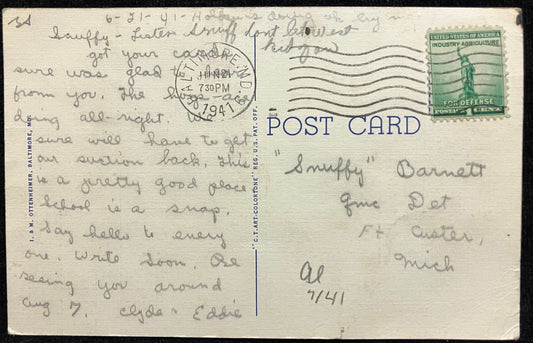 6-21-41-
Snuffy - Listen Snuff dont
got your card
sure was glad to hear
from you. The boys are
doing all-right. We
sure will have to get
our suction back. This
is a pretty good place
School is a snap.
Say hello to every
one. Write soon. Be
seeing you around
Aug 7. Clyde - Eddie
BALTIMORE, MD.
JUN 21
730 PM
1941
UNITED STATES OF AMERICA
INDUSTRY AGRICULTURE
FOR DEFENSE
POSTAGE 1 CENT
POST CARD
"Snuffy" Barnett
QMC Det
Ft Custer,
Mich
Al
7/41
I. & M. OTTENHEIMER, BALTIMORE, MD.
"C.T. ART-COLORTONE" REG. U.S. PAT. OFF.